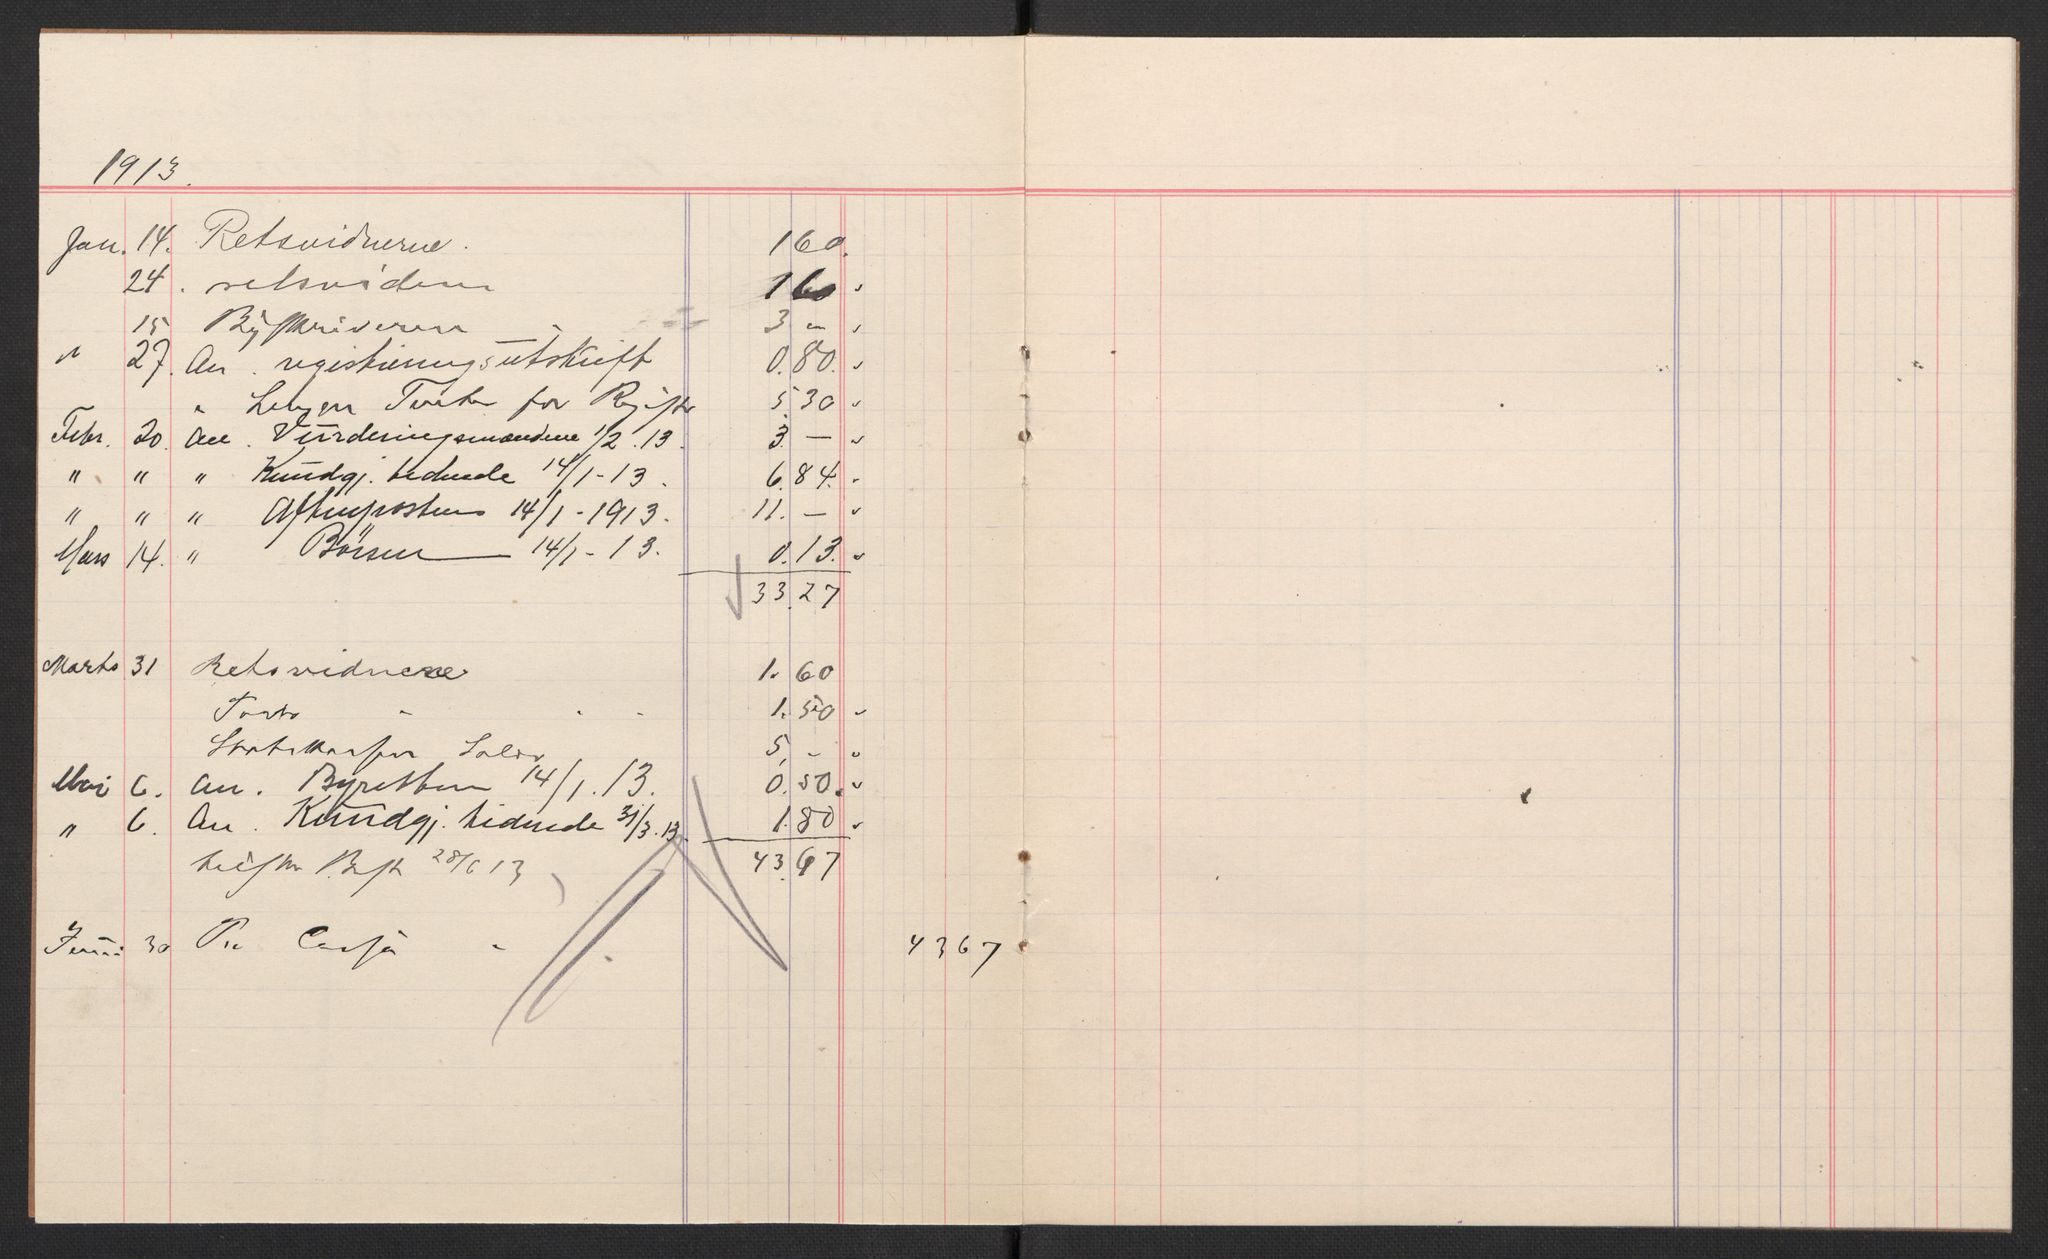 1913.
Jan. 14. Retsvidnerne. 1 60.
24. retsvidner 1 60 "
15 Byskriveren 3 – "
" 27. An. registreringsutskrift 0.80. "
" for 5.30 "
Febr. 20. An. Vurderingsmændene 1/2.13. 3. – "
" " " Kundgj. tidende 14/1-13. 6.84. "
" " " Aftenposten 14/1-1913. 11. – "
Mars 14. " Børsen 14/1-13. 0.13. "
33.27
Marts 31 Retsvidnerne 1.60
Porto " 1.50 "
5. – "
Mai 6. An. Byretten 14/1.13. 0.50. "
" 6. An. Kundgj. tidende 31/3.13. 1.80 "
28/6 13 43.67
Juni 30 Pr Cassa 43 67